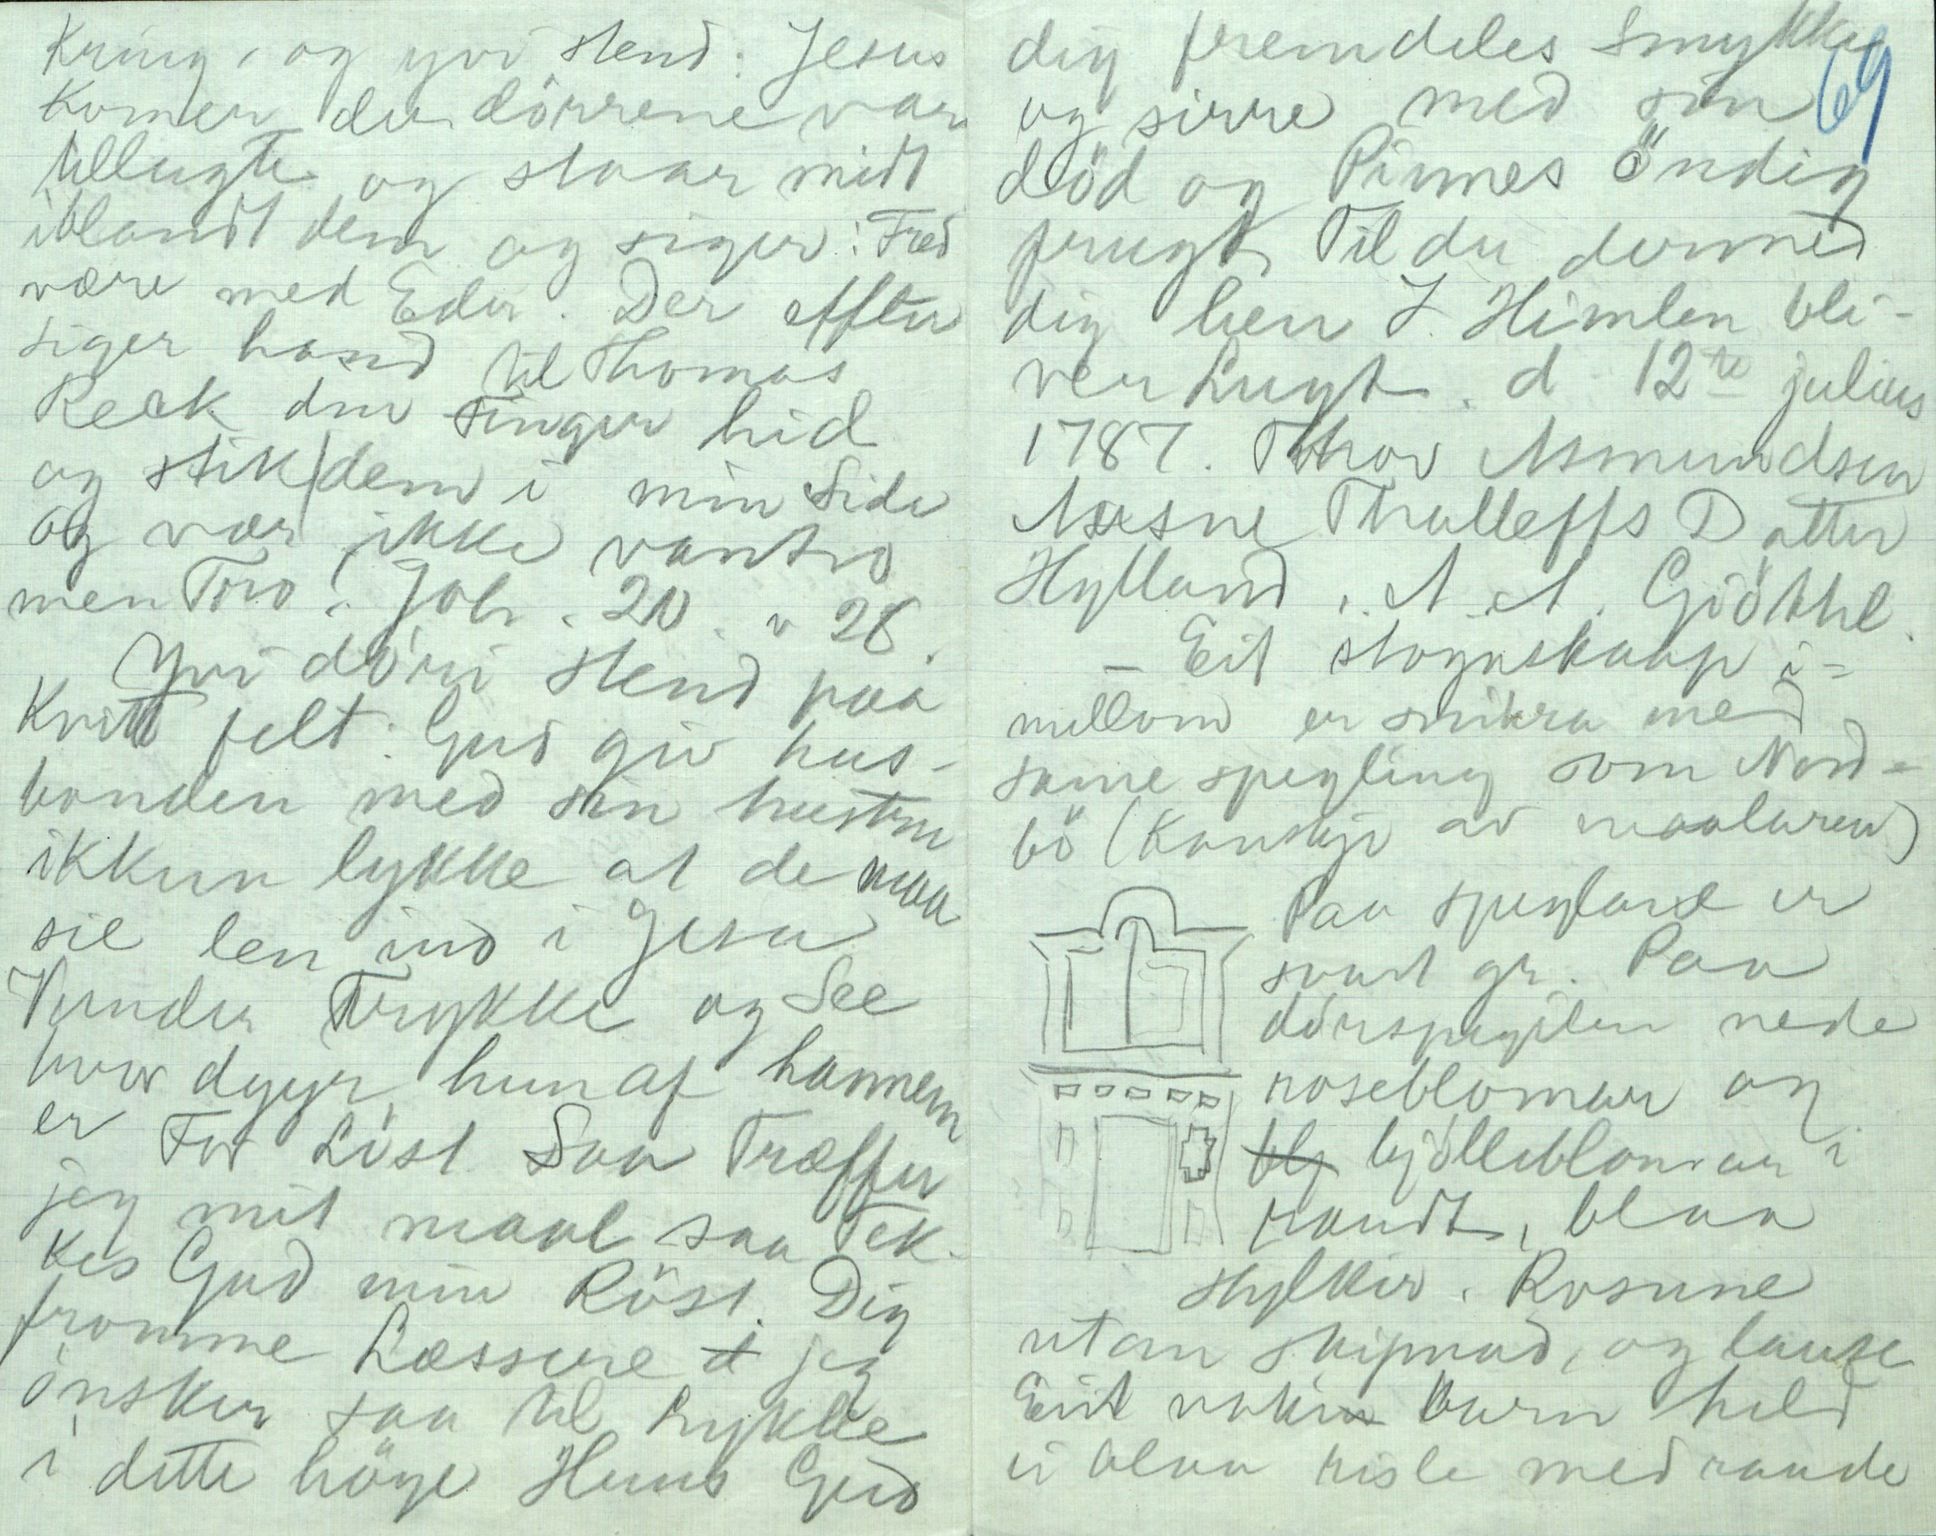 Kring, og yvi stend: Jesus
Komer der dörrene var
tillugte og staar midt
iblandt dem og siger: Fred
være med Eder. Der effter
siger hand til Thomas
Reck din Finger hid
og stik dem i min Side
og vær ikke vantro
men Tro. Joh. 20. v 28.
Yvi döri stend paa
Kvitt felt: Gud giv hus-
bonden med sin hustru
ikkun lykke at de maa
sie len ind i Jesu
Vunder Trykke og See
hvor dyyr hun af hannem
er For Löst Saa Træffer
jeg mit maal saa Tek-
kes Gud min Röst. Dig
fromme Læssere jeg
önsker saa til Lykke
i dette höye Huus Gud
dig fremdeles Smykke
og sirre med sin
död og Pinnes öndig
frugt Til du dermed
dig hen I. Himlen bli-
ver Lugt. d. 12te julius
1787. Thor Asmundsen
Aasne Thalleffs Datter
Hylland. A. A. Giöthl.
– Eit stogueskaap i-
millom er snikra med
same spegling som Nord-
bö (Kanskje av maalaren)
Paa speglane er
svart gr. Paa
dörspegilen nede
roseblomar og
bjölleblomar i
raudt, blaa
stylkir. Rosune
utan skipnad, og lause
Eit nakin barn held
ei blaa risle med raude
69